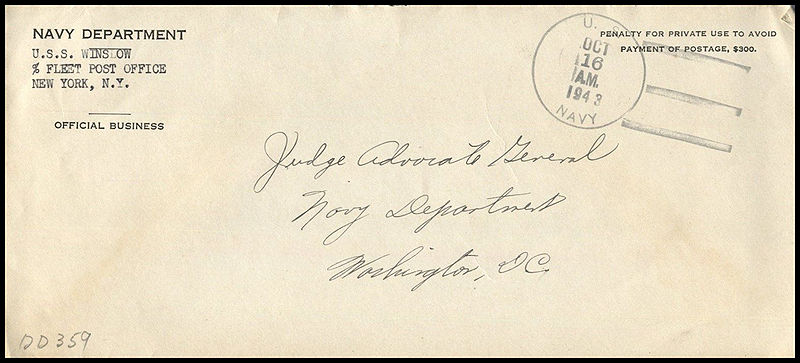 NAVY DEPARTMENT
U.S.S. WINSLOW
% FLEET POST OFFICE
NEW YORK, N.Y.
OFFICIAL BUSINESS
U. S.
OCT
16
A.M.
1943
NAVY
PENALTY FOR PRIVATE USE TO AVOID
PAYMENT OF POSTAGE, $300.
Judge Advocate General
Navy Department
Washington, DC
DD 359